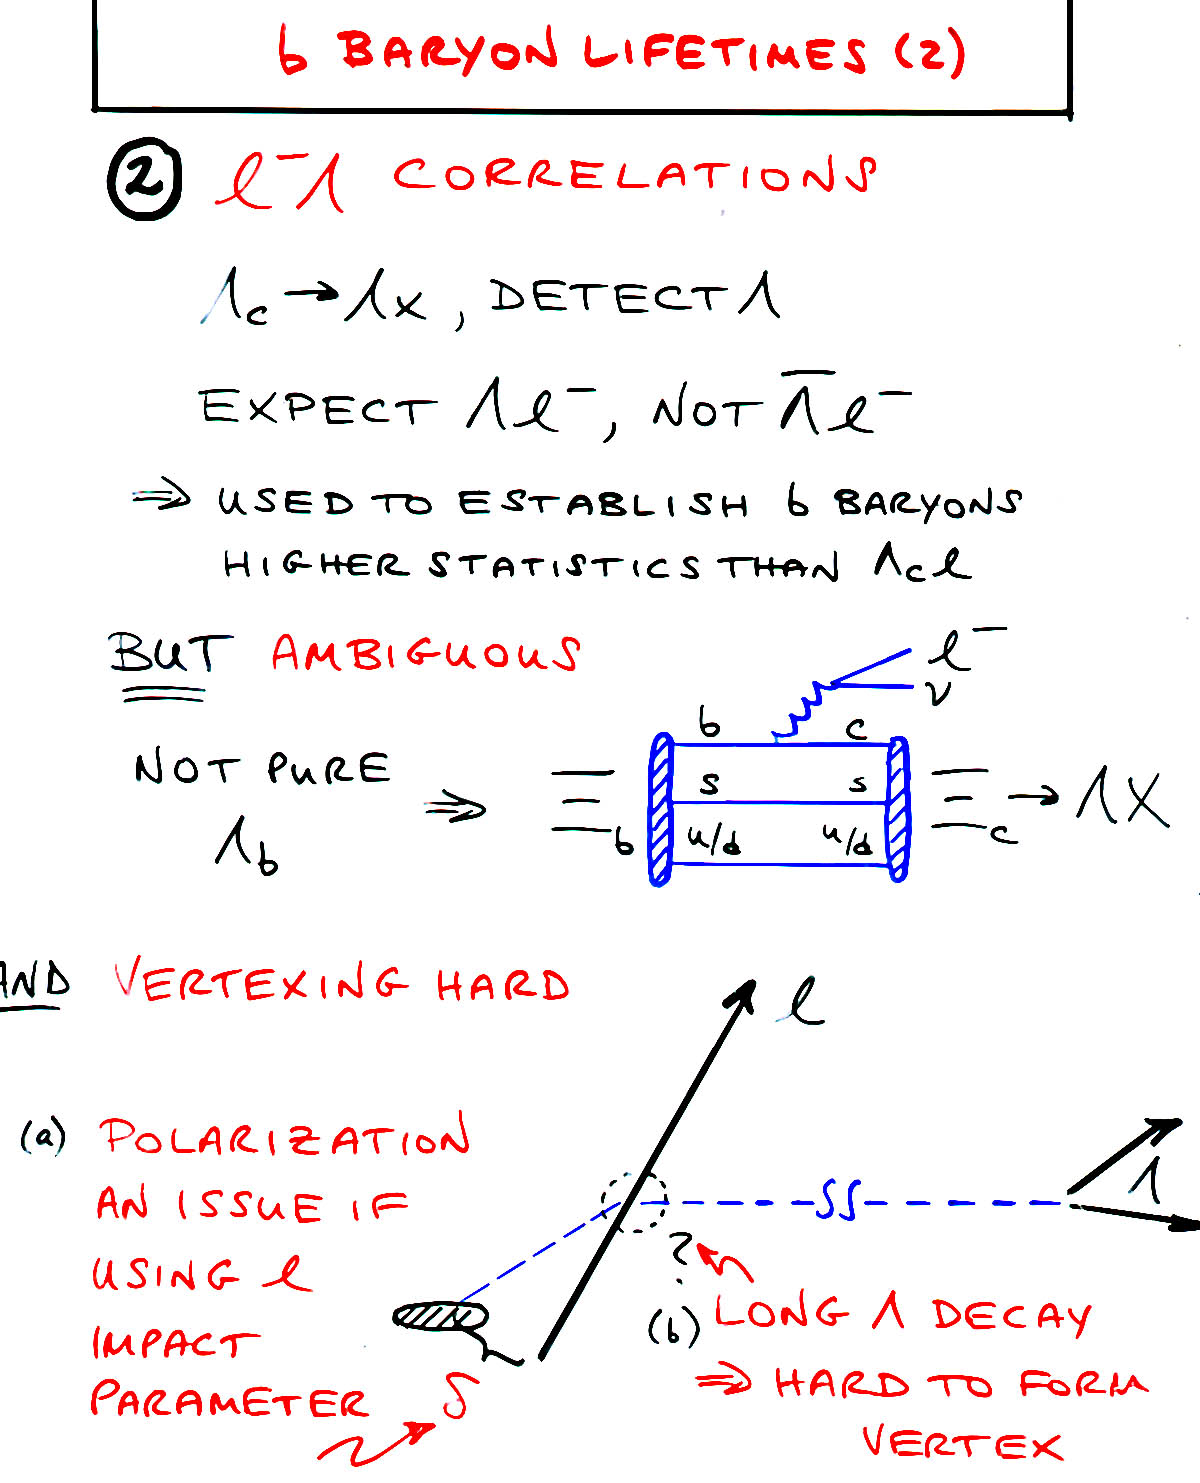 b BARYON LIFETIMES (2)
② ℓ⁻Λ CORRELATIONS
Λc → ΛX, DETECT Λ
EXPECT Λℓ⁻, NOT Λ̅ℓ⁻
⇒ USED TO ESTABLISH b BARYONS
HIGHER STATISTICS THAN Λcℓ
BUT AMBIGUOUS
NOT PURE
Λb
⇒
ℓ⁻
ν
b c
s s
u/d u/d
Ξb
Ξc → ΛX
AND VERTEXING HARD
ℓ
(a) POLARIZATION
AN ISSUE IF
USING ℓ
IMPACT
PARAMETER
δ
Λ
?
(b) LONG Λ DECAY
⇒ HARD TO FORM
VERTEX